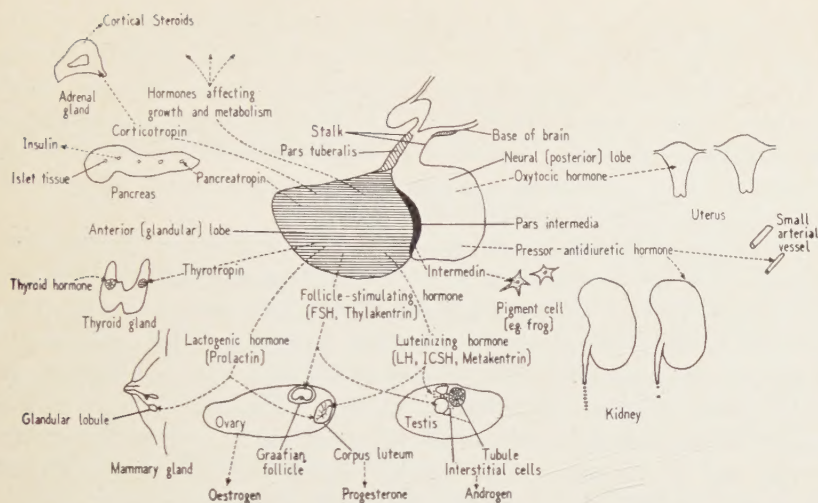 Cortical Steroids
Adrenal
gland
Hormones affecting
growth and metabolism
Corticotropin
Insulin
Islet tissue
Pancreas
Pancreatropin
Stalk
Pars tuberalis
Base of brain
Neural (posterior) lobe
Oxytocic hormone
Uterus
Anterior (glandular) lobe
Pars intermedia
Small
arterial
vessel
Pressor-antidiuretic hormone
Thyroid hormone
Thyrotropin
Thyroid gland
Intermedin
Pigment cell
(eg. frog)
Follicle-stimulating hormone
(FSH, Thylakentrin)
Lactogenic hormone
(Prolactin)
Luteinizing hormone
(LH, ICSH, Metakentrin)
Kidney
Glandular lobule
Mammary gland
Ovary
Graafian
follicle
Corpus luteum
Testis
Tubule
Interstitial cells
Oestrogen
Progesterone
Androgen